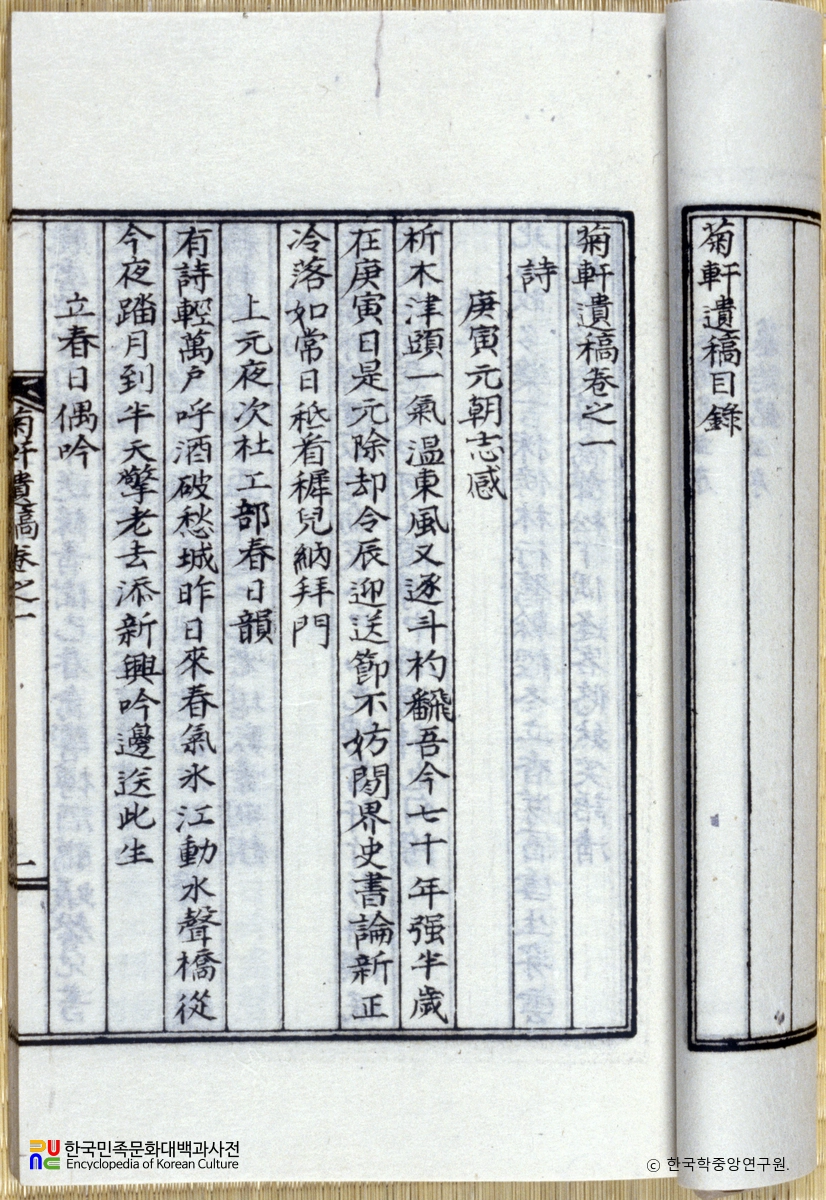 菊軒遺稿目錄
菊軒遺稿卷之一
詩
庚寅元朝志感
析木津頭一氣溫東風又逐斗杓飜吾今七十年强半歲
在庚寅日是元除却令辰迎送節不妨閒界史書論新正
冷落如常日秪看穉兒納拜門
上元夜次杜工部春日韻
有詩輕萬戶呼酒破愁城昨日來春氣氷江動水聲橋從
今夜踏月到半天擎老去添新興吟邊送此生
立春日偶吟
菊軒遺稿卷之一
一
한국민족문화대백과사전
Encyclopedia of Korean Culture
ⓒ 한국학중앙연구원.